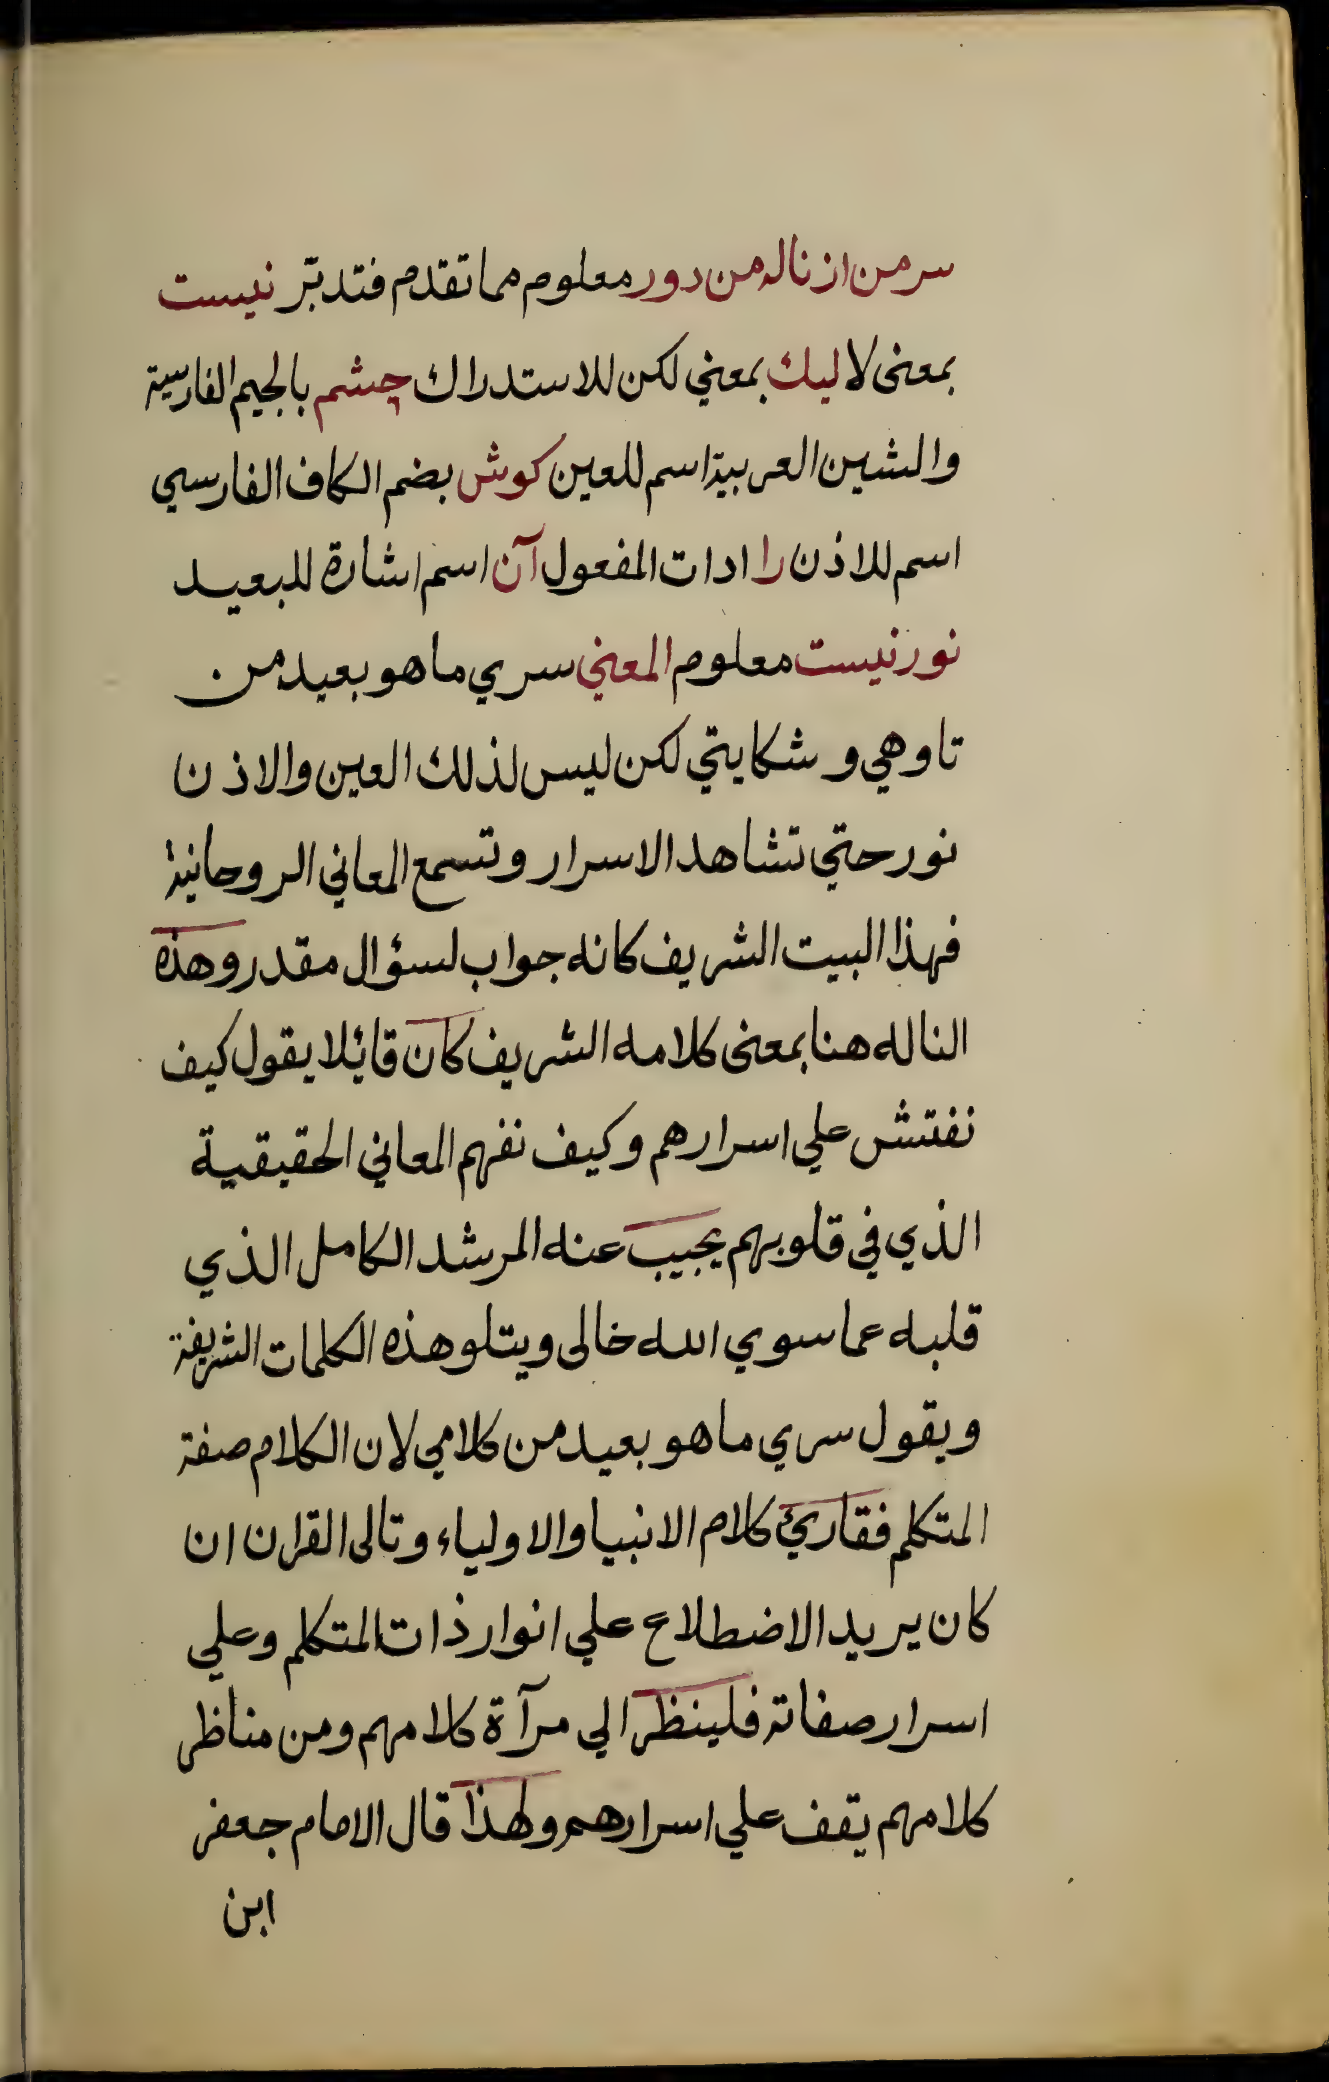 سر من از ناله من دور معلوم مما تقدم فتدبّر نيست
بمعنى لا ليك بمعني لكن للاستدراك چشم بالجيم الفارسية
والشين العربية اسم للعين كوش بضم الكاف الفارسي
اسم للاذن را ادات المفعول آن اسم اشارة للبعيد
نور نيست معلوم المعني سري ما هو بعيد من
تاوهي و شكايتي لكن ليس لذلك العين والاذن
نور حتي تشاهد الاسرار وتسمع المعاني الروحانية
فهذا البيت الشريف كانه جواب لسؤال مقدر وهذه
الناله هنا بمعنى كلامه الشريف كان قائلا يقول كيف
نفتش علي اسرارهم وكيف نفهم المعاني الحقيقية
الذي في قلوبهم يجيب عنه المرشد الكامل الذي
قلبه عما سوي الله خالى ويتلو هذه الكلمات الشريفة
ويقول سري ما هو بعيد من كلامي لان الكلام صفة
المتكلم فقاريء كلام الانبيا والاولياء وتالى القران ان
كان يريد الاضطلاع علي انوار ذات المتكلم وعلي
اسرار صفاته فلينظر الي مرآة كلامهم ومن مناظر
كلامهم يقف علي اسرارهم ولهذا قال الامام جعفر
ابن